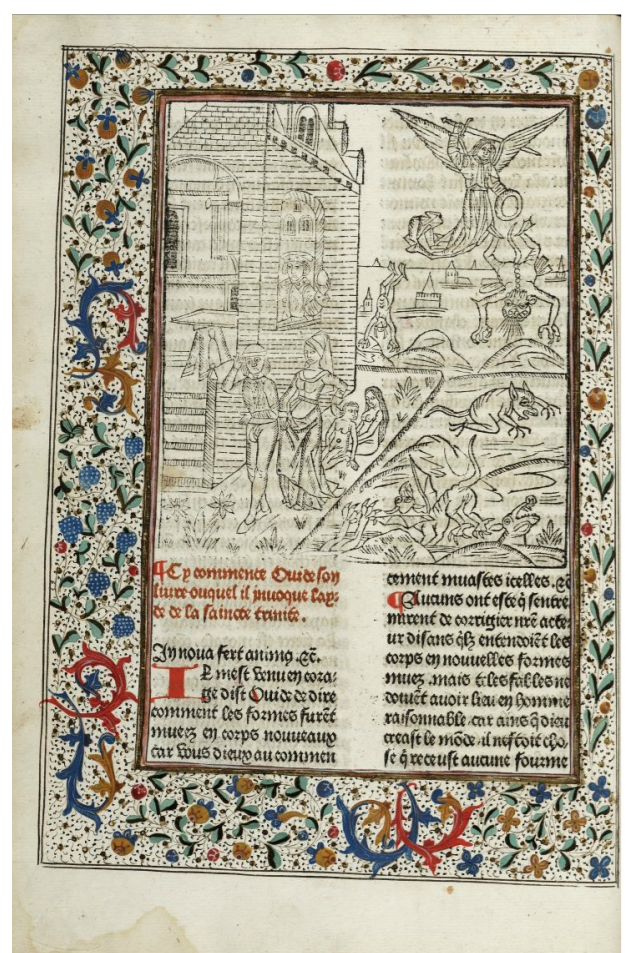 ¶Cy commence Ouide son
liure ouquel il inuoque lay-
de de la saincte trinite.
In noua fert animꝰ. ⁊c̄.
IL mest venu en cora-
ge dist Ouide de dire
comment les formes furẽt
muez en corps nouueaux
car vous dieux au commen
cement muastes icelles. ⁊c̄
¶Aucuns ont este q̃ sentre
mirent de corrigier nr̃e acte
ur disans q̃lz entendoiẽt les
corps en nouuelles formes
muez. mais telles fables ne
doiuẽt auoir lieu en homme
raisonnable car ains q̃ dieu
creast le mõde. il nestoit cho-
se q̃ receust aucune fourme